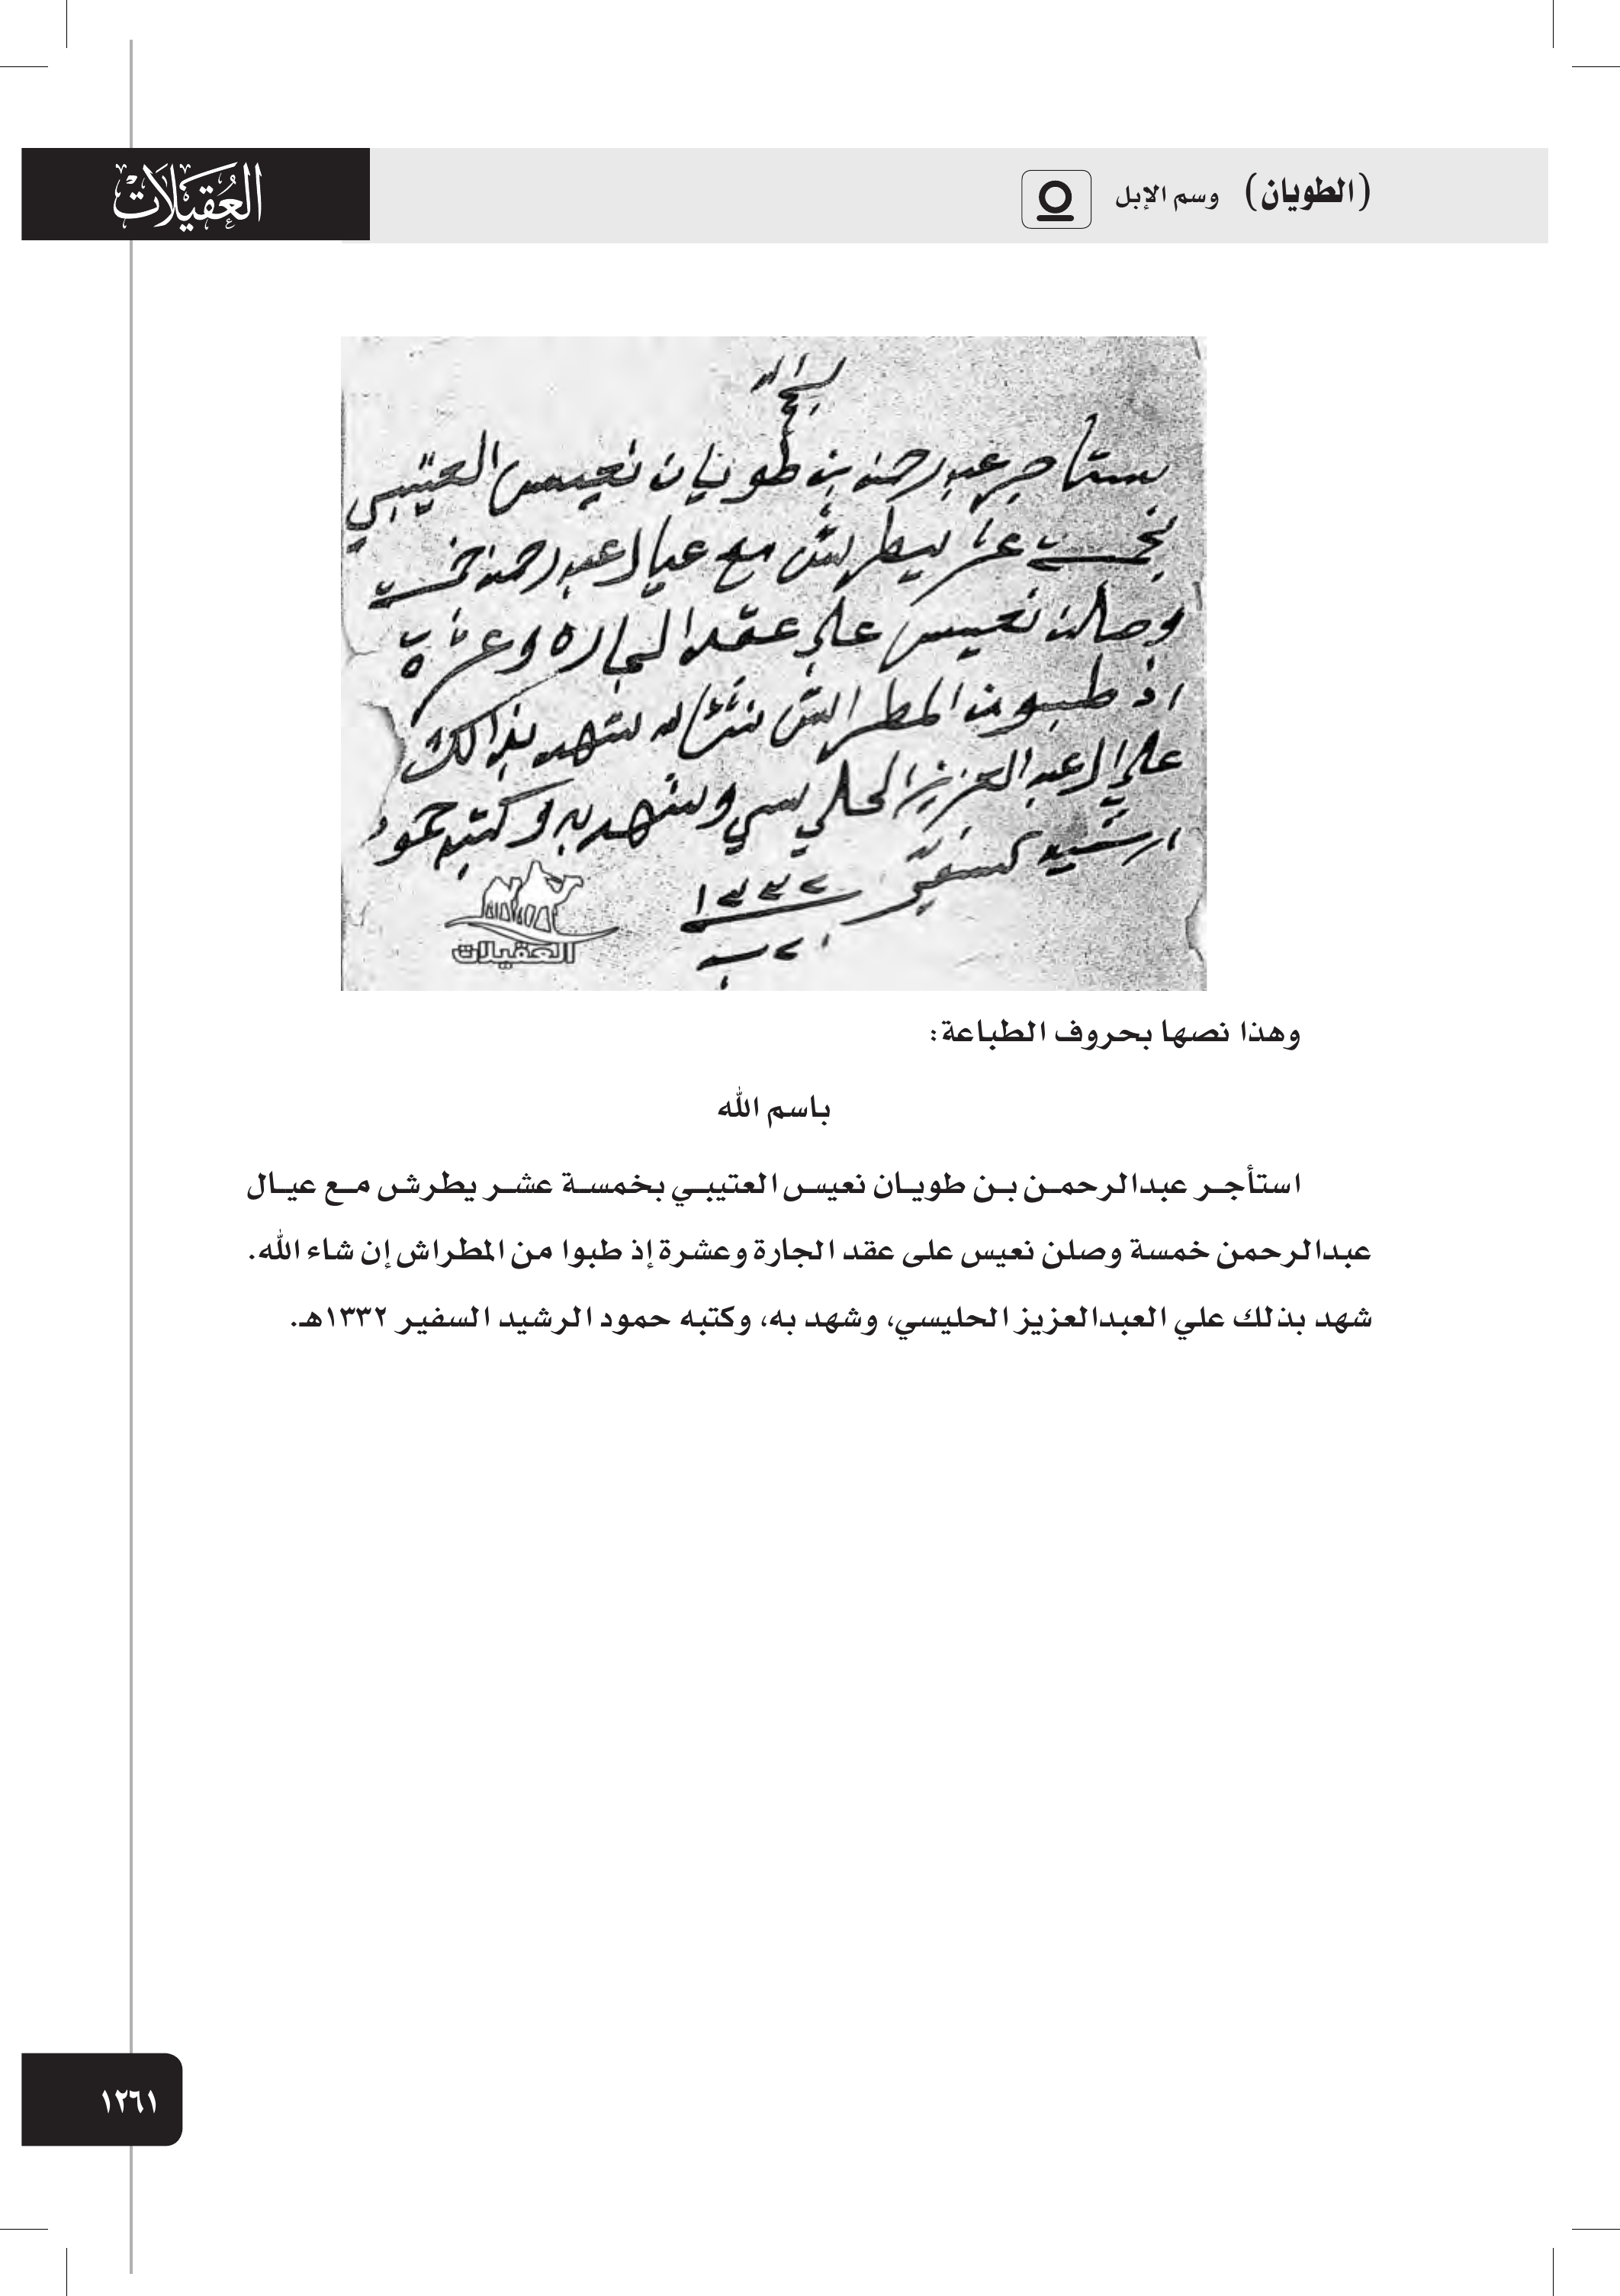 (الطويان) وسم الإبل
العُقَيْلَاتْ
بسم الله
ستأجر عبدرحمن بن طويان نعيس العتيبي
بخمسة عشر يطرش مع عيال عبدرحمن خمسة
وصلن نعيس علي عقد الجاره وعشرة
اذ طبو من المطراش نشاله شهد بذالك
علي ال عبد العزيز الحليسي وشهد به وكتبه حمود
ارشيد
١٣٣٢
العقيلات
وهذا نصها بحروف الطباعة:
باسم الله
استأجر عبدالرحمن بن طويان نعيس العتيبي بخمسة عشر يطرش مع عيال
عبدالرحمن خمسة وصلن نعيس على عقد الجارة وعشرة إذ طبوا من المطراش إن شاء الله.
شهد بذلك علي العبدالعزيز الحليسي، وشهد به، وكتبه حمود الرشيد السفير ١٣٣٢هـ.
١٢٦١